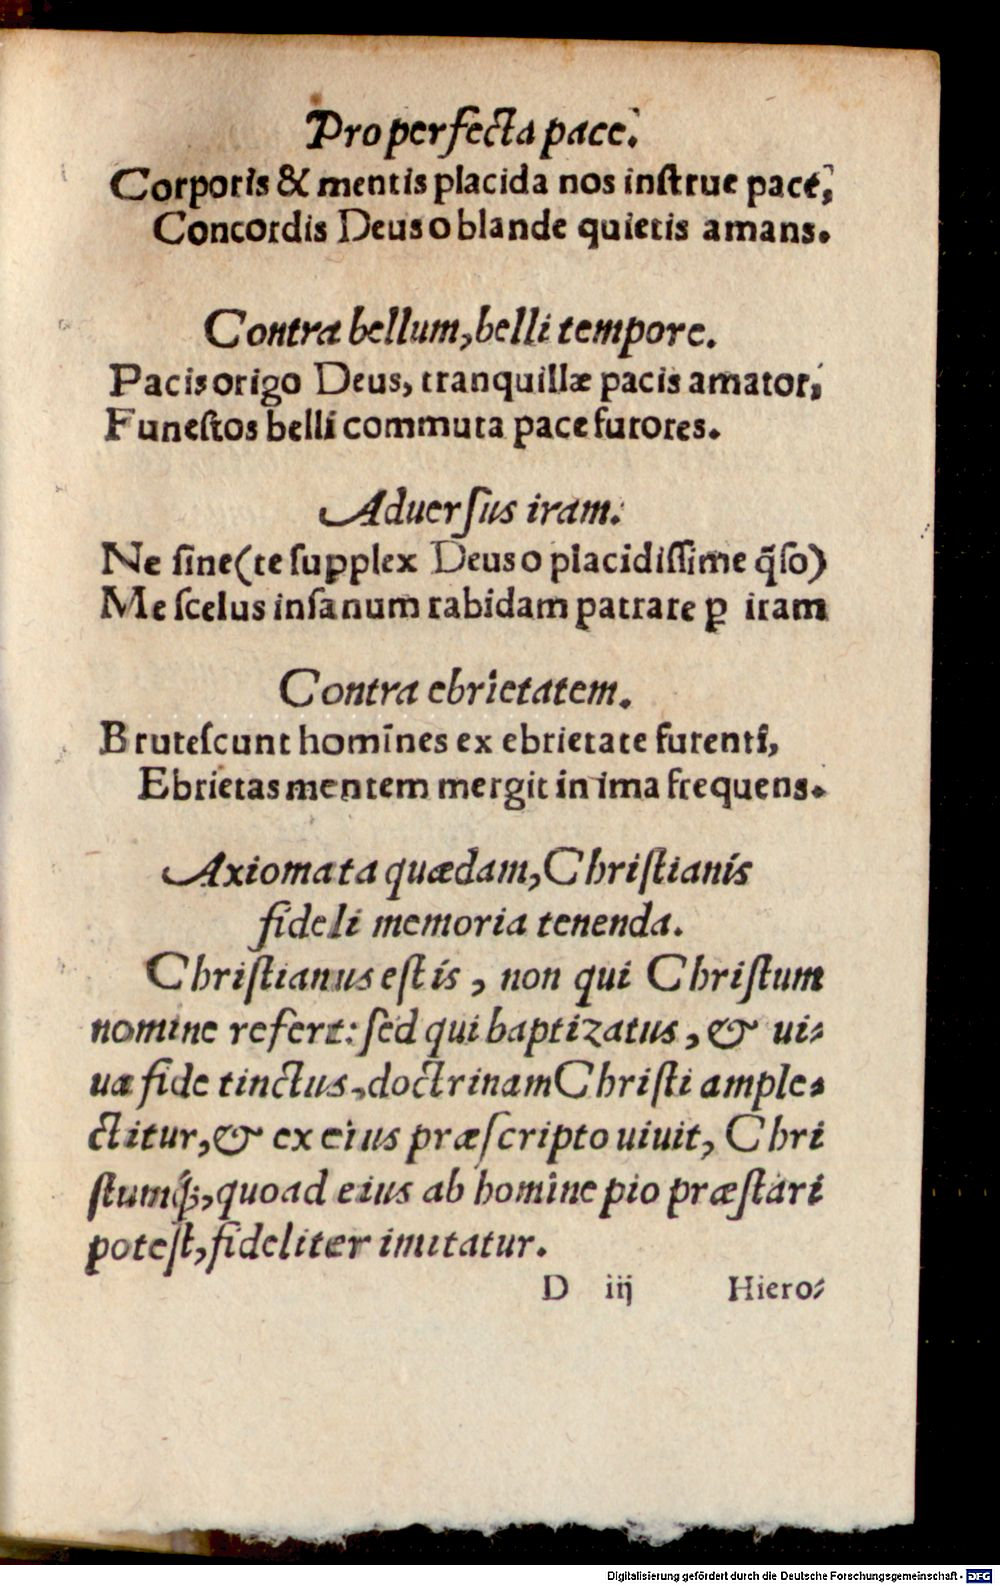 Pro perfecta pace.
Corporis & mentis placida nos inſtrue pace,
Concordis Deus o blande quietis amans.
Contra bellum, belli tempore.
Pacis origo Deus, tranquillæ pacis amator,
Funeſtos belli commuta pace furores.
Aduerſus iram.
Ne ſine (te ſupplex Deus o placidiſſime q̃ſo)
Me ſcelus inſanum rabidam patrare ꝑ iram
Contra ebrietatem.
Bruteſcunt homines ex ebrietate furenti,
Ebrietas mentem mergit in ima frequens.
Axiomata quædam, Chriſtianis
fideli memoria tenenda.
Chriſtianus eſt is, non qui Chriſtum
nomine refert: ſed qui baptizatus, & ui⸗
ua fide tinctus, doctrinam Chriſti ample⸗
ctitur, & ex eius præſcripto uiuit, Chri
ſtumq́;, quoad eius ab homine pio præſtari
poteſt, fideliter imitatur.
D iij Hiero⸗
Digitalisierung gefördert durch die Deutsche Forschungsgemeinschaft - DFG